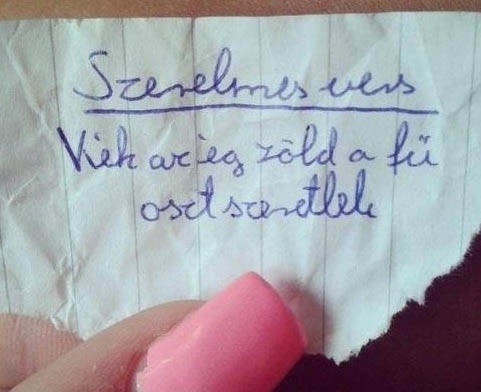 Szerelmes vers
Kék az ég zöld a fű
oszt szeretlek